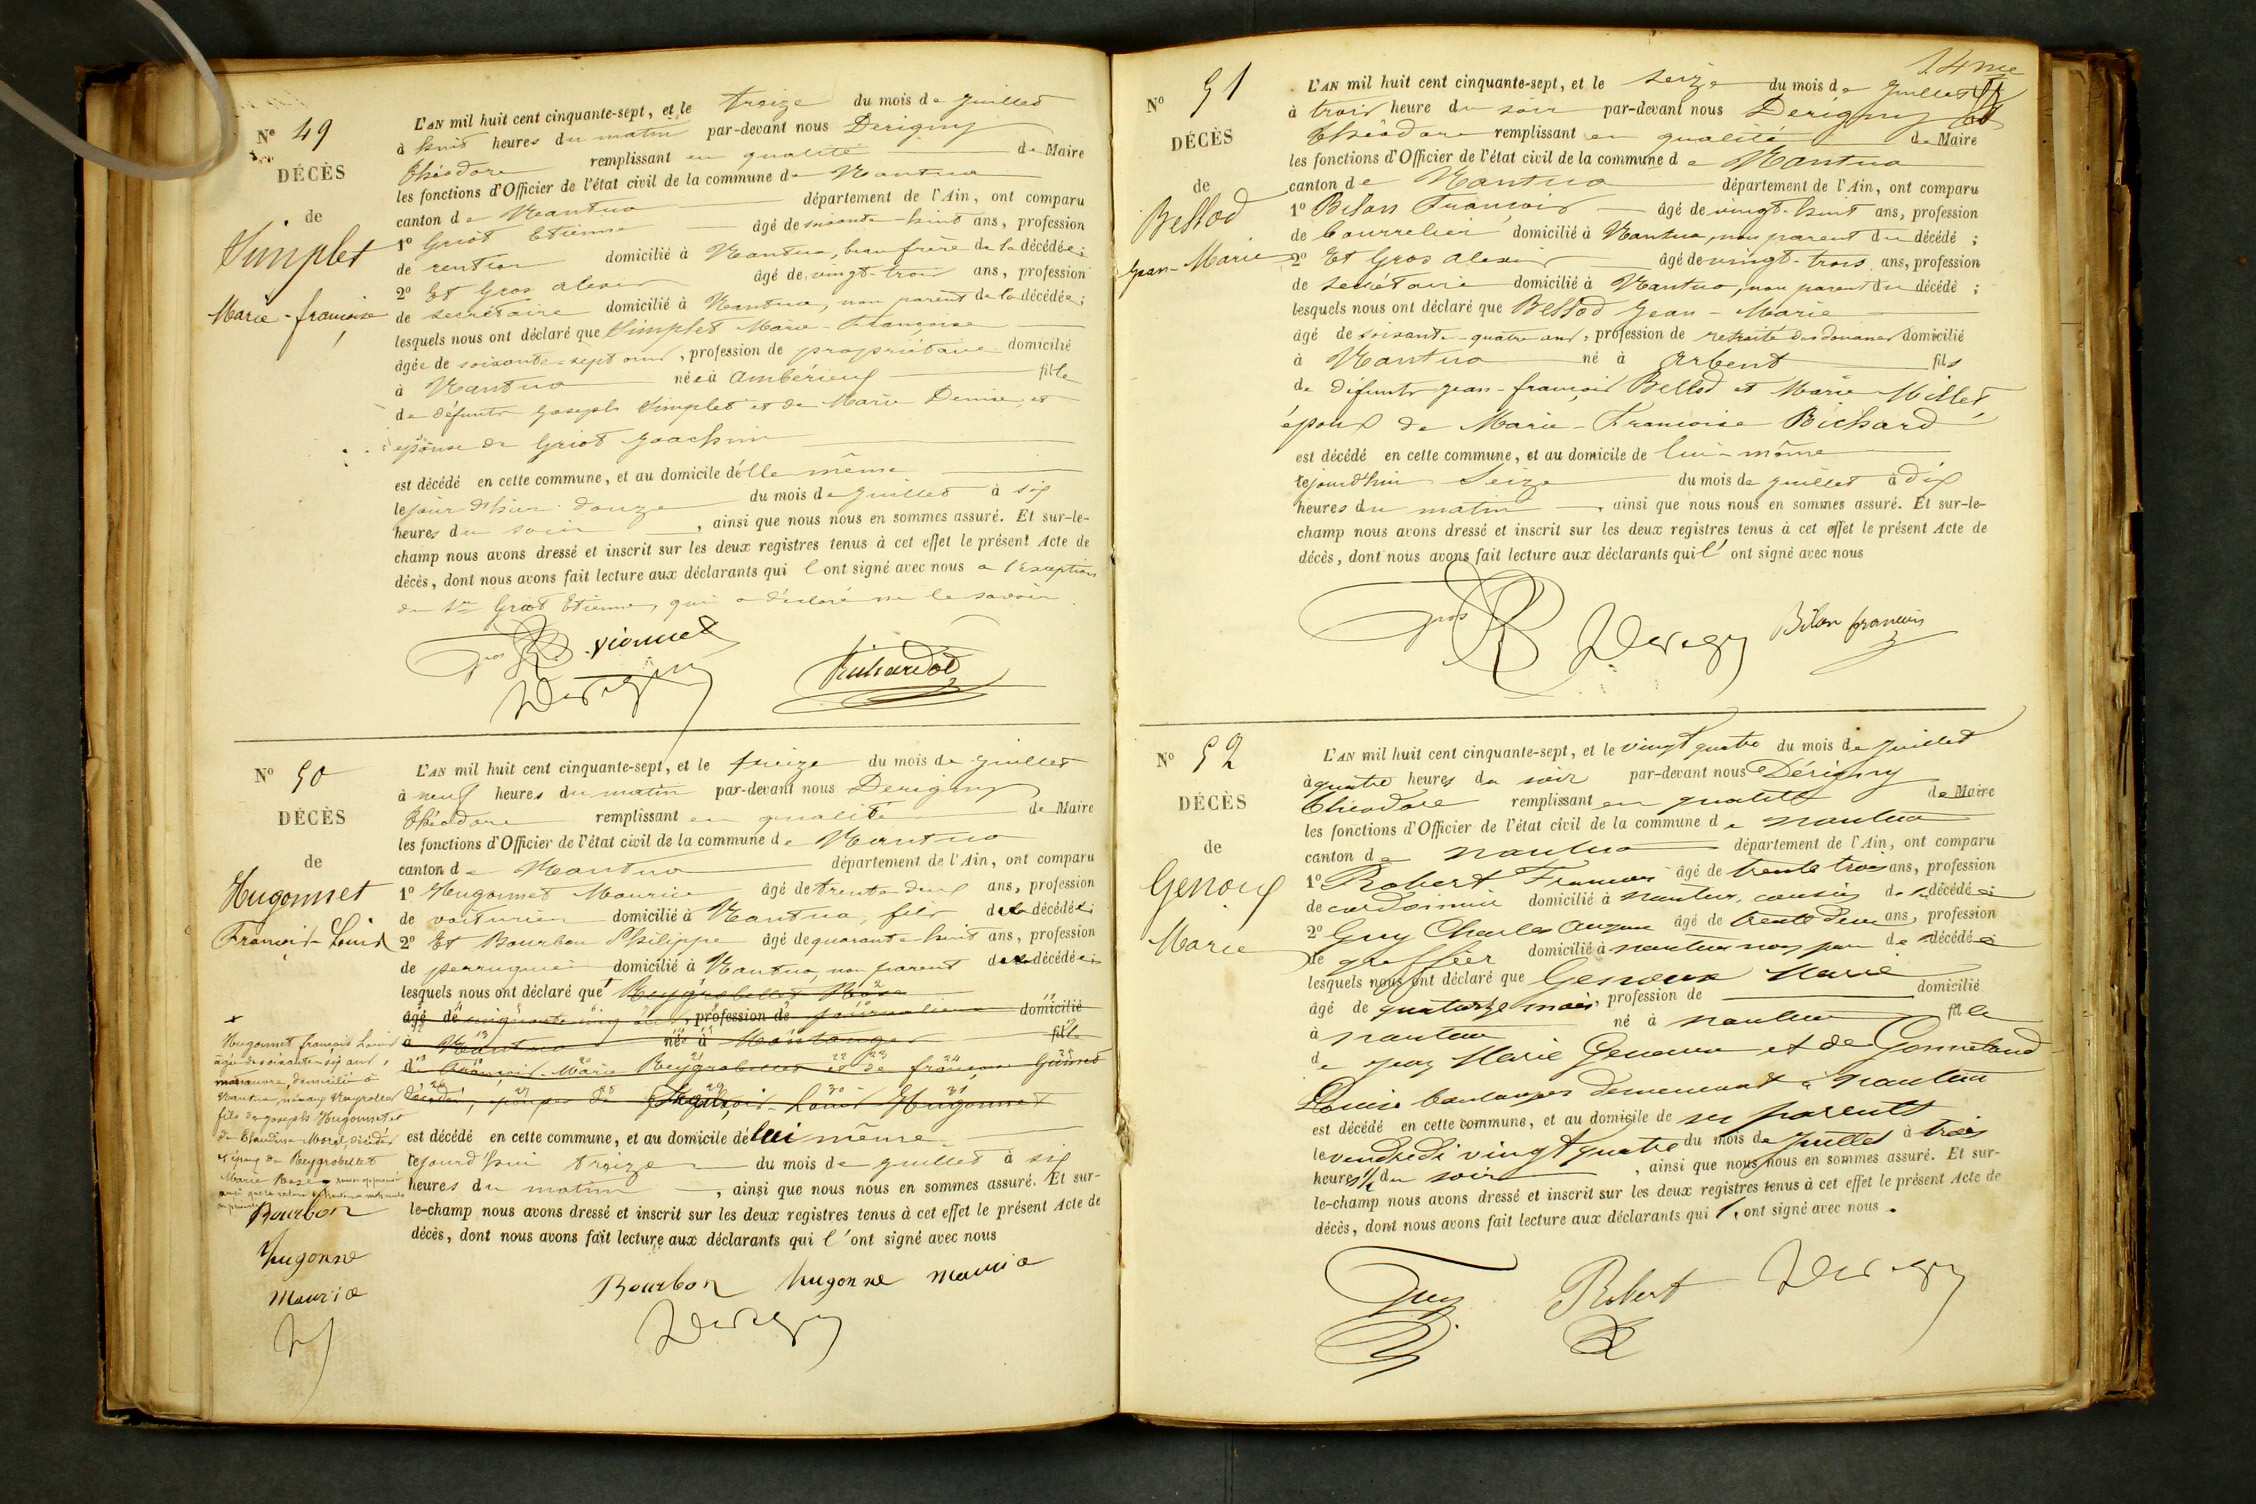 N° 49
DÉCÈS
de
Simplet
Marie-françoise
L'AN mil huit cent cinquante-sept, et le treize du mois de juillet
à huit heures du matin par-devant nous Derigny
théodore remplissant en qualité de Maire
les fonctions d'Officier de l'état civil de la commune de Nantua
canton de Nantua département de l'Ain, ont comparu
1° Griot Etienne âgé de soixante-huit ans, profession
de rentier domicilié à Nantua, beau frère de la décédée;
2° Et Gros alexis âgé de vingt-trois ans, profession
de secrétaire domicilié à Nantua, non parent de la décédée;
lesquels nous ont déclaré que Simplet Marie-françoise
âgée de soixante-sept ans, profession de propriétaire domicilié
à Nantua née à Ambérieux fille
de défunts Joseph Simplet et de Marie Denise, et
épouse de Griot Joachim
est décédé en cette commune, et au domicile d'elle même
le jour d'hier douze du mois de juillet à six
heures du soir, ainsi que nous nous en sommes assuré. Et sur-le-
champ nous avons dressé et inscrit sur les deux registres tenus à cet effet le présent Acte de
décès, dont nous avons fait lecture aux déclarants qui l'ont signé avec nous a l'exception
du Sr Griot Etienne, qui a déclaré ne le savoir
Gros
Derigny
N° 50
DÉCÈS
de
Hugonnet
François-Louis
L'AN mil huit cent cinquante-sept, et le treize du mois de juillet
à neuf heures du matin par-devant nous Derigny
théodore remplissant en qualité de Maire
les fonctions d'Officier de l'état civil de la commune de Nantua
canton de Nantua département de l'Ain, ont comparu
1° Hugonnet Maurice âgé de trente-deux ans, profession
de voiturier domicilié à Nantua, fils du décédé;
2° Et Bourbon Philippe âgé de quarante-huit ans, profession
de perruquier domicilié à Nantua, non parent du décédé;
lesquels nous ont déclaré que Reygrobellet Rose
âgé de cinquante cinq ans, profession de journalière domicilié
à Nantua né à fille
de François-Marie Reygrobellet et de françoise
décédés, épouse de François-Louis Hugonnet
est décédé en cette commune, et au domicile de lui même
le jourd'hui treize du mois de juillet à six
heures du matin, ainsi que nous nous en sommes assuré. Et sur-
le-champ nous avons dressé et inscrit sur les deux registres tenus à cet effet le présent Acte de
décès, dont nous avons fait lecture aux déclarants qui l'ont signé avec nous
Bourbon hugonne mauria
Derigny
Hugonnet françois Louis
âgé de soixante-six ans,
manœuvre, domicilié à
Nantua, né aux Neyrolles
fils de joseph Hugonnet et
de Claudine Morel, décédés
et époux de Reygrobellet
Marie Rose
Bourbon
hugonne
mauria
14me
N° 51
DÉCÈS
de
Bellod
Jean-Marie
L'AN mil huit cent cinquante-sept, et le seize du mois de juillet
à trois heure du soir par-devant nous Derigny
théodore remplissant en qualité de Maire
les fonctions d'Officier de l'état civil de la commune de Nantua
canton de Nantua département de l'Ain, ont comparu
1° Bilon François âgé de vingt-huit ans, profession
de bourrelier domicilié à Nantua, non parent du décédé;
2° Et Gros alexis âgé de vingt-trois ans, profession
de secrétaire domicilié à Nantua, non parent du décédé;
lesquels nous ont déclaré que Bellod Jean-Marie
âgé de soixante-quatre ans, profession de retraité des douanes domicilié
à Nantua né à Arbent fils
de défunts jean-françois Bellod et Marie Millet,
époux de Marie-Françoise Bichard
est décédé en cette commune, et au domicile de lui-même
le jourd'hui Seize du mois de juillet à dix
heures du matin, ainsi que nous nous en sommes assuré. Et sur-le-
champ nous avons dressé et inscrit sur les deux registres tenus à cet effet le présent Acte de
décès, dont nous avons fait lecture aux déclarants qui l'ont signé avec nous
Gros Derigny Bilon francois
N° 52
DÉCÈS
de
Genoux
Marie
L'AN mil huit cent cinquante-sept, et le vingt quatre du mois de juillet
à quatre heures du soir par-devant nous Dérigny
Théodore remplissant en qualité de Maire
les fonctions d'Officier de l'état civil de la commune de nantua
canton de nantua département de l'Ain, ont comparu
1° Robert Francois âgé de trente trois ans, profession
de cordonnier domicilié à nantua, cousin de la décédée
2° Guy Charles âgé de trente deux ans, profession
de greffier domicilié à nantua non par de décédée
lesquels nous ont déclaré que Genoux Marie
âgé de quatorze mois, profession de domicilié
à nantua né à nantua fille
de jean Marie Genoux et de Gonneland
Louise boulangers demeurant à nantua
est décédé en cette commune, et au domicile de ses parents
le vendredi vingt quatre du mois de juillet à trois
heures 1/2 du soir, ainsi que nous nous en sommes assuré. Et sur-
le-champ nous avons dressé et inscrit sur les deux registres tenus à cet effet le présent Acte de
décès, dont nous avons fait lecture aux déclarants qui l'ont signé avec nous.
Guy Robert Derigny